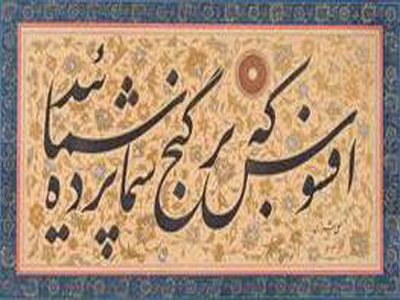 افسوس که بر گنج شما پرده شمائید